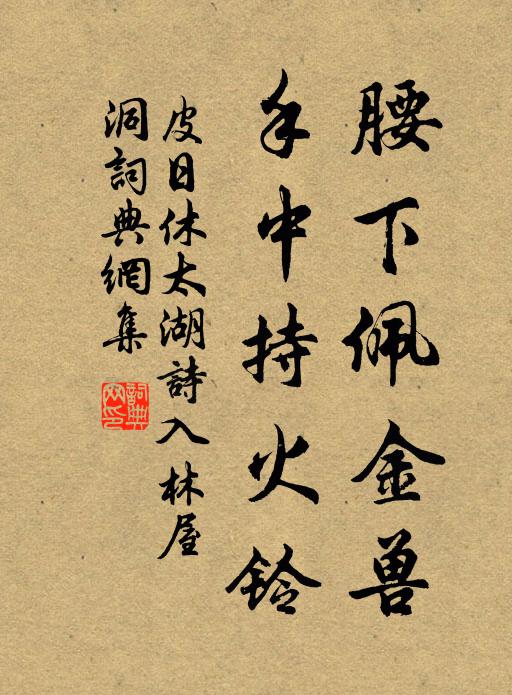 腰下佩金兽
手中持火铃
皮日休太湖詩入林屋
洞詞典網集
詞典
网印